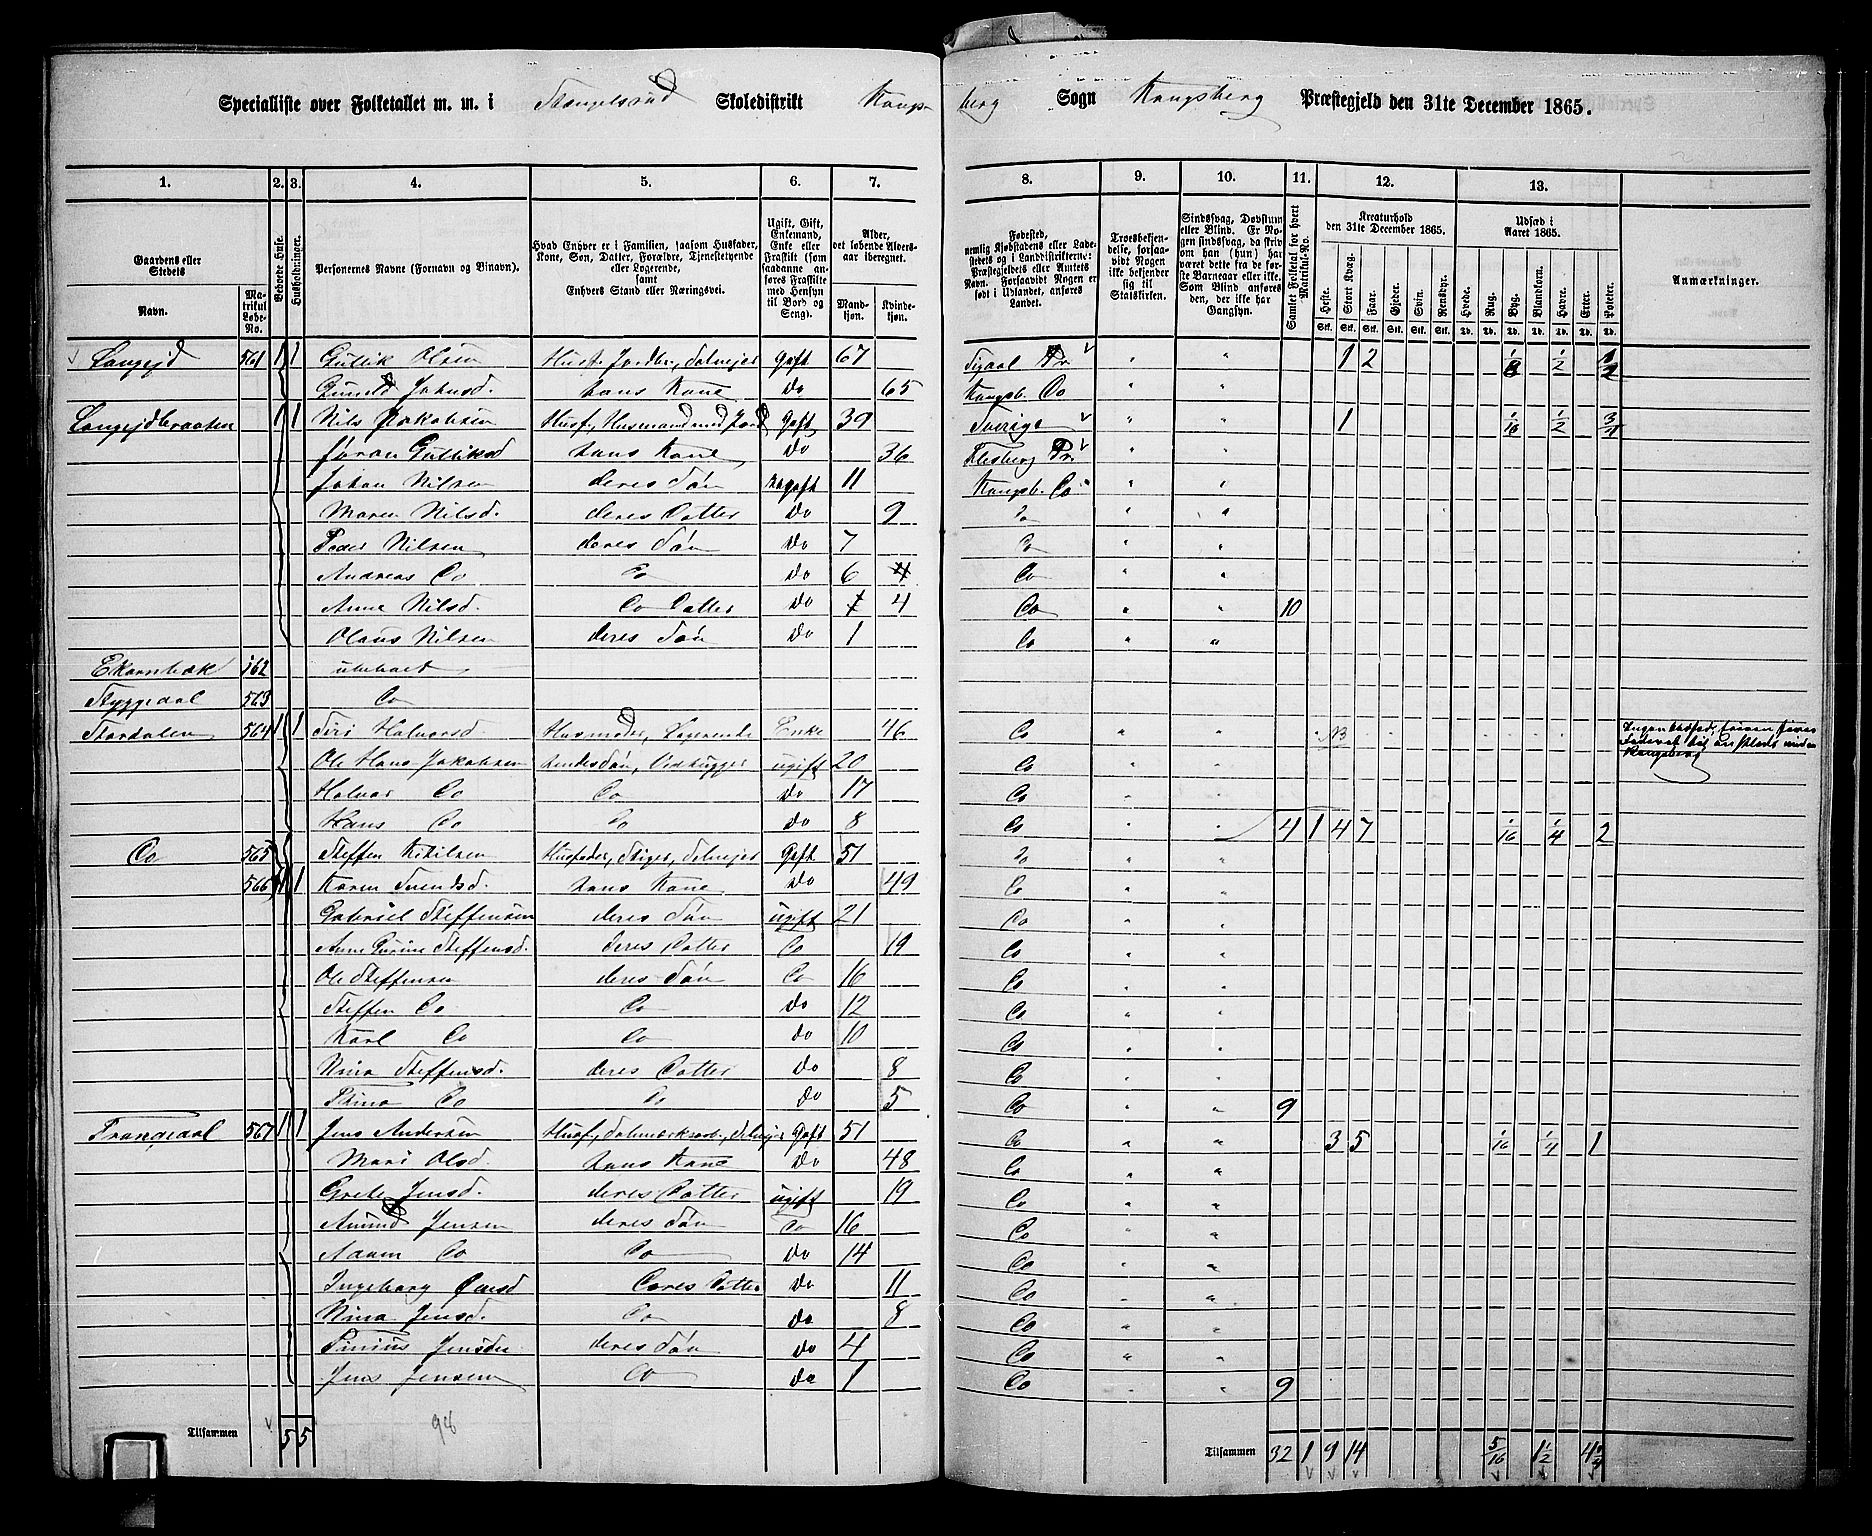 Specialliste over Folketallet m. m. i Stengelsrud Skoledistrikt Kongsberg Sogn Kongsberg Præstegjeld den 31te December 1865.
1. 2. 3. 4. 5. 6. 7. 8. 9. 10. 11. 12. 13.
Gaardens eller Stedets
Navn. Matrikul Løbe-No.
Beboede Huse.
Husholdninger.
Personernes Navne (Fornavn og Tilnavn).
Hvad Enhver er i Familien, saasom Husfader, Kone, Søn, Datter, Forældre, Tjenestetyende eller Logerende, samt Enhvers Stand eller Næringsvei.
Ugift, Gift, Enkemand, Enke eller Fraskilt (som saadanne anføres Fraskilte med Hensyn til Bord og Seng).
Alder, det løbende Alders-aar iberegnet.
Mandkjøn. Kvindekjøn.
Fødested, nemlig Kjøbstadens eller Ladestedets og i Landdistrikterne: Præstegjeldets eller Amtets Navn. Forsaavidt Nogen er født i Udlandet, anføres Landet.
Troesbekjendelse, forsaavidt Nogen ikke bekjender sig til Statskirken.
Sindssvag, Døvstum eller Blind. Er Nogen sindssvag, da skrives om han (hun) har været dette fra de første Barneaar eller ikke. Som Blind anføres den, der ikke har Gangsyn.
Samlet Folketal for hvert Matrikul-No.
Kreaturhold den 31te December 1865.
Heste. Stort Kvæg. Faar. Gjeder. Svin. Rensdyr.
Udsæd i Aaret 1865.
Hvede. Rug. Byg. Blandkorn. Havre. Erter. Poteter.
Anmærkninger.
Langejd 561 1 1 Gullik Olsen Husf. Jordbr, Selvejer Gift 67 Sigdal Pr. " " 1 2 1/8 1/2
Gunild Johnsd. hans Kone do 65 Kongsb. Do " "
Langejdbraaten 1 1 Nils Jakobsen Husf, Husmand med Jord Gift 39 Sverige " " 1 1/16 1/2
Jøran Gulliksd hans Kone do 36 Flesberg Pr. " "
Johan Nilsen deres Søn ugift 11 Kongsb. Do " "
Maren Nilsd. deres Datter do 9 Do " "
Peder Nilsen deres Søn do 7 Do " "
Andreas Do Do do 6 Do " "
Anne Nilsd. Do Datter do 4 Do " " 10
Olaus Nilsen deres Søn do 1 Do " "
Ekornbæk 562 ubeboed
Styggedal 563 Do
Stordalen 564 1 1 Siri Halvorsd. Husmoder, Logerende Enke 46 Do " "
Ole Hans Jakobsen hendes Søn, Vedhugger ugift 20 Do " "
Halvor Do Do do 17 Do " "
Hans Do Do do 8 Do " " 4 1 4 7 1/16 1/4 2
Do 565 1 Steffen Kittilsen Husfader, Stiger, Selvejer Gift 51 Do " "
566 1 1 Karen Svendsd. hans Kone do 49 Do " "
Gabriel Steffensen deres Søn ugift 21 Do " "
Anne Gurine Steffensd. deres Datter Do 19 Do " "
Ole Steffensen deres Søn Do 16 Do " "
Steffen Do Do do 12 Do " "
Karl Do Do do 10 Do " "
Nina Steffensd. deres Datter do 8 Do " "
Stina Do Do do 5 Do " " 9
Trangedal 567 1 1 Jens Andersen Gift 51 Do " " 3 5 1/16 1/4 1
Mari Olsd. hans Kone do 48 Do " "
Grete Jensd. deres Datter ugift 19 Do " "
Amund Jensen deres Søn Do 16 Do " "
Do Do do 14 Do " "
Ingeborg Jensd Deres Datter do 11 Do " "
Nina Jensd. Do do 8 Do " "
deres Søn do 4 Do " "
Jens Jensen Do do 1 Do " " 9
Tilsammen 5 5 98
Tilsammen 32 1 9 14 5/16 1 1/2